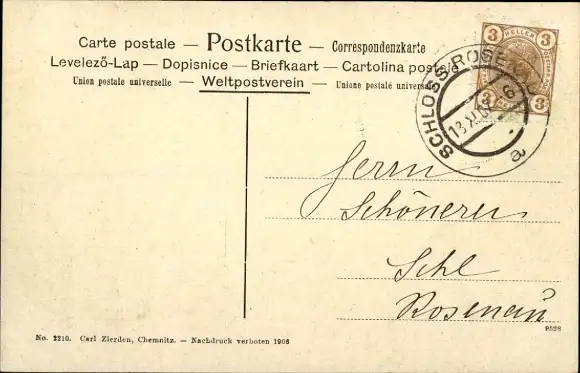 Carte postale — Postkarte — Correspondenzkarte
Levelező-Lap — Dopisnice — Briefkaart — Cartolina postale
Union postale universelle — Weltpostverein — Unione postale universale
3 HELLER 3
3 3
SCHLOSS ROSENAU
13 XI 6
a
Herrn
Schönerer
Schl
Rosenau
No. 2210. Carl Zierden, Chemnitz. — Nachdruck verboten 1906
9528